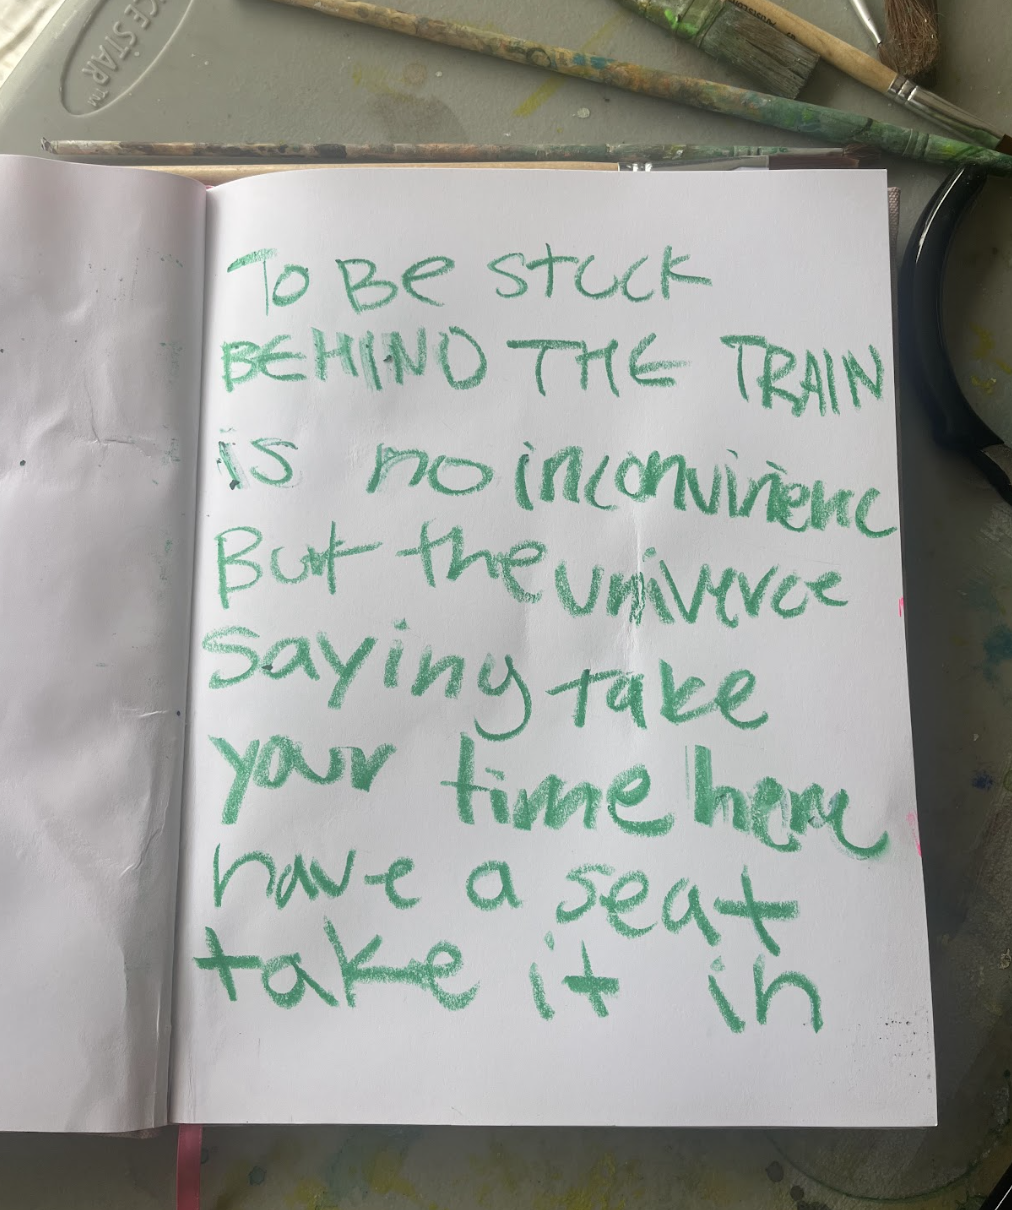 CE STAR™
To Be stuck
BEHIND THE TRAIN
is no inconvinienc
But the univerce
saying take
your time here
have a seat
take it in